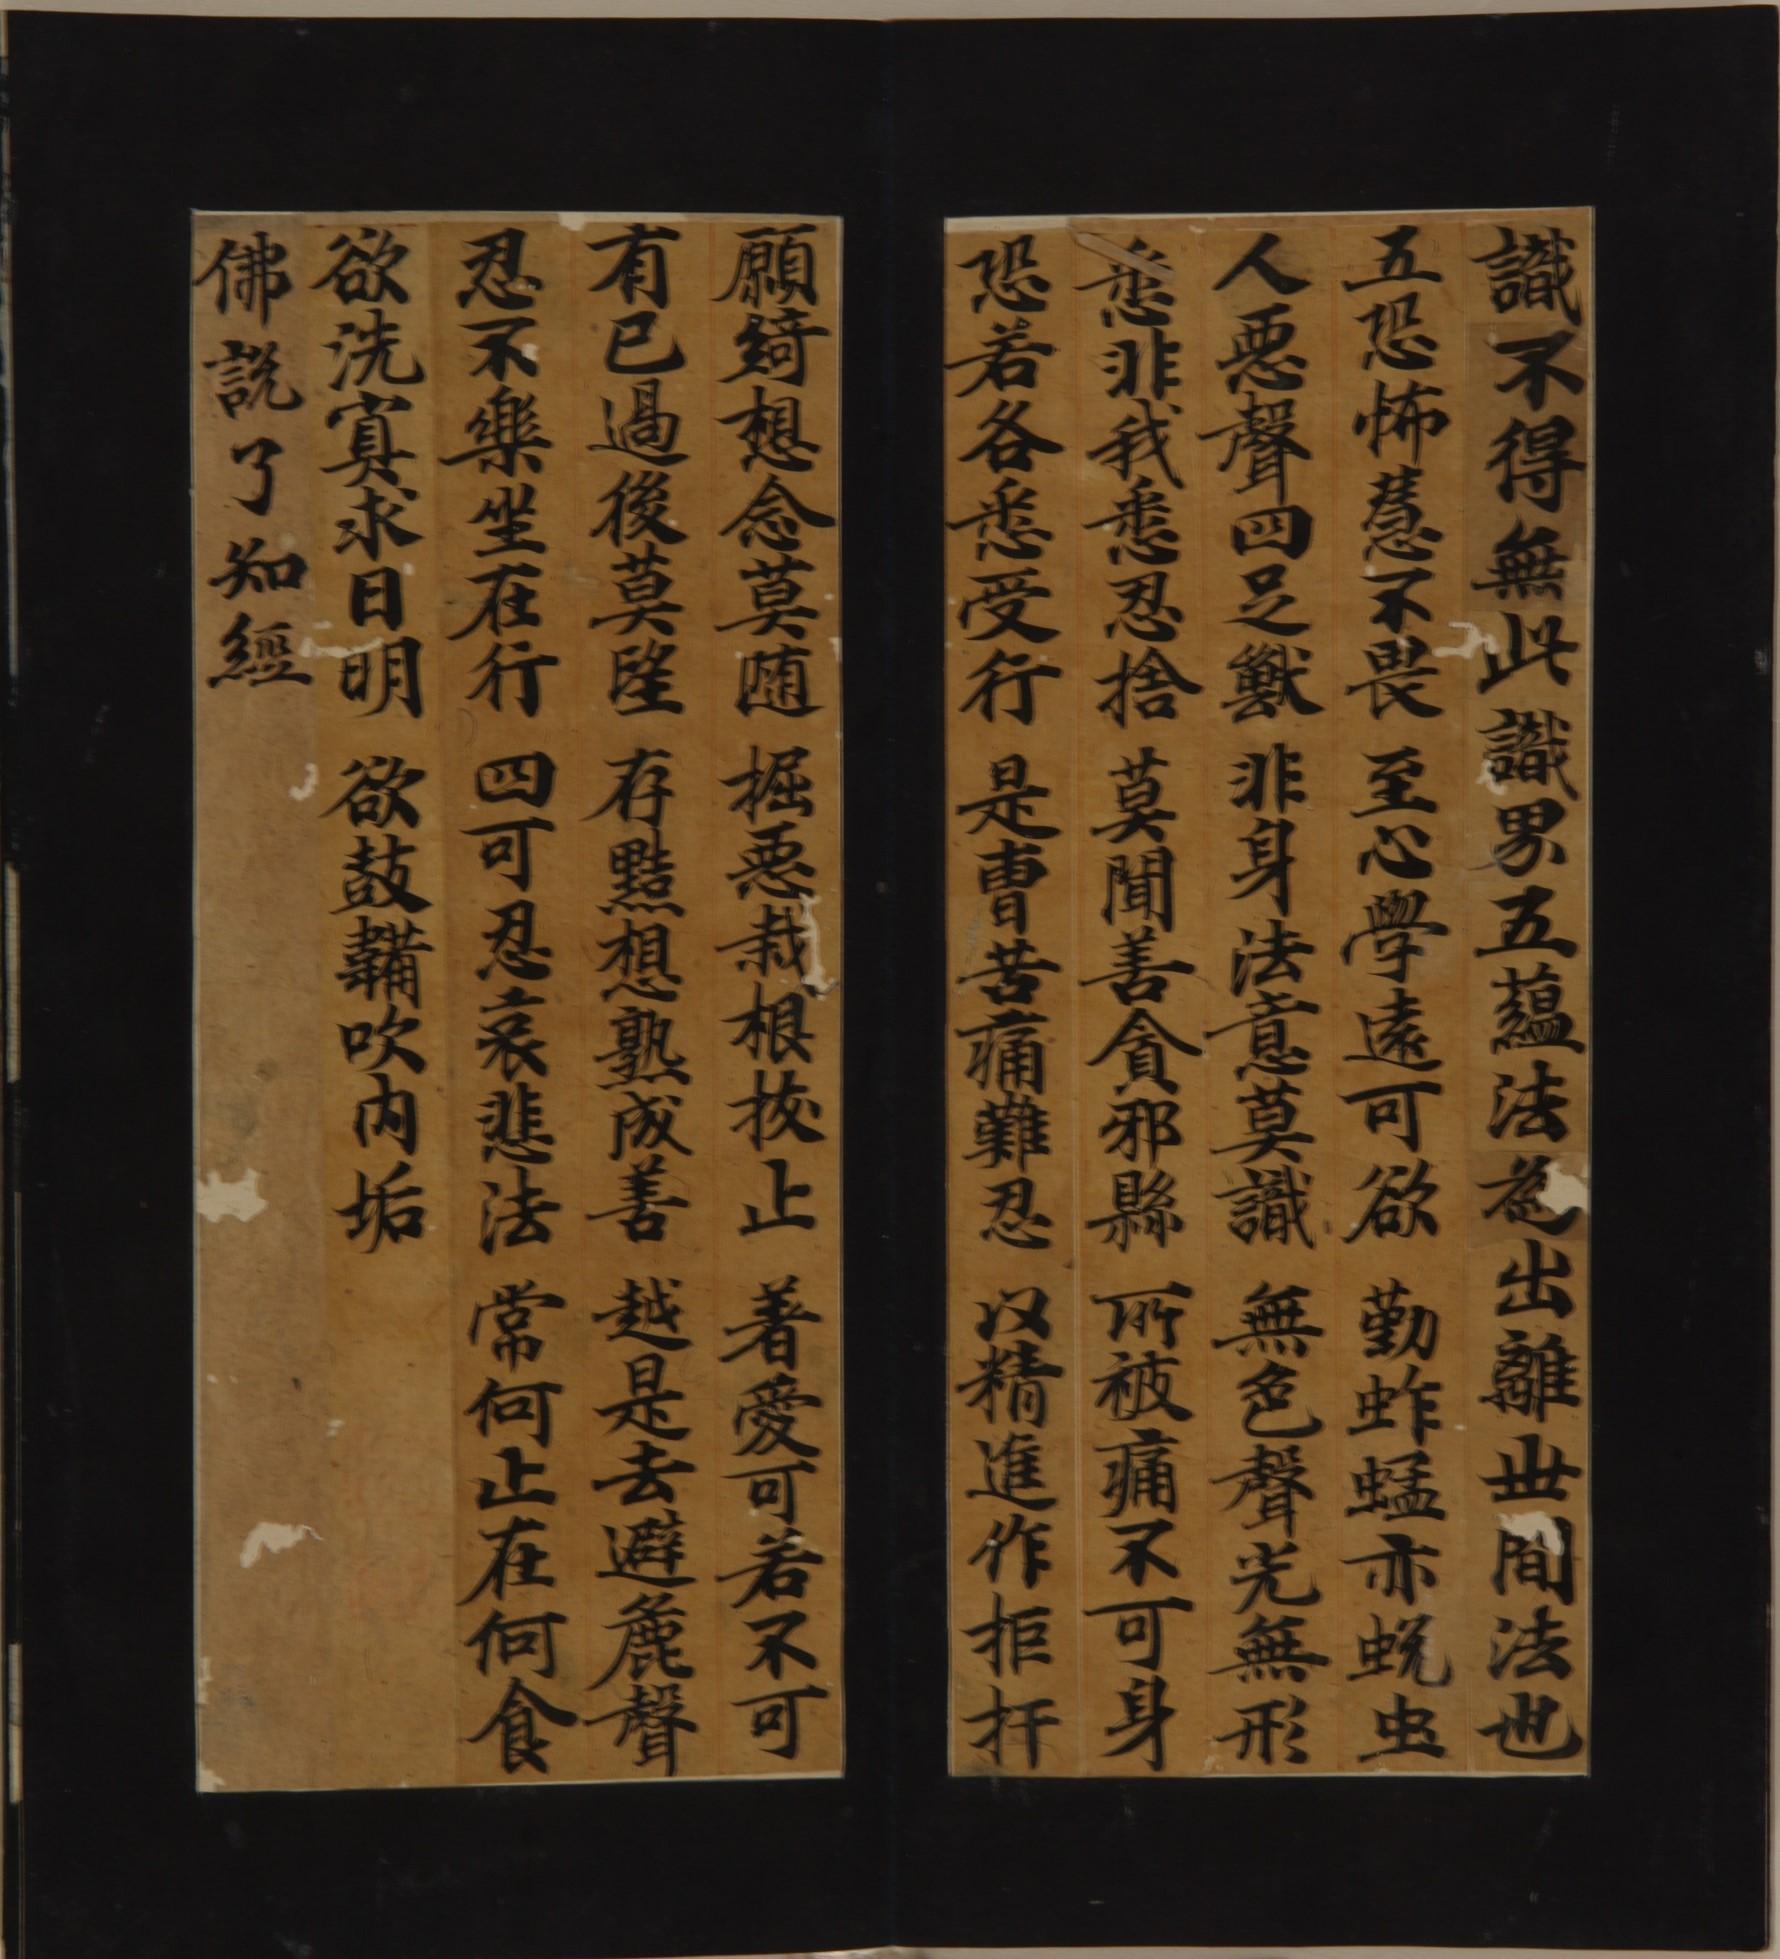 識不得無此識界五蘊法為出離世間法也
五恐怖慧不畏 至心學遠可欲 勤蚱蜢亦蛻虫
人惡聲四足獸 非身法意莫識 無色聲光無形
悉非我悉忍捨 莫聞善貪邪縣 所被痛不可身
恐若各悉受行 是曹苦痛難忍 以精進作拒扞
願綺想念莫随 掘惡栽根拔止 著愛可若不可
有已過後莫望 存黠想熟成善 越是去避麁聲
忍不樂坐在行 四可忍哀悲法 常何止在何食
欲洗寘求日明 欲鼓韛吹内垢
佛說了知經